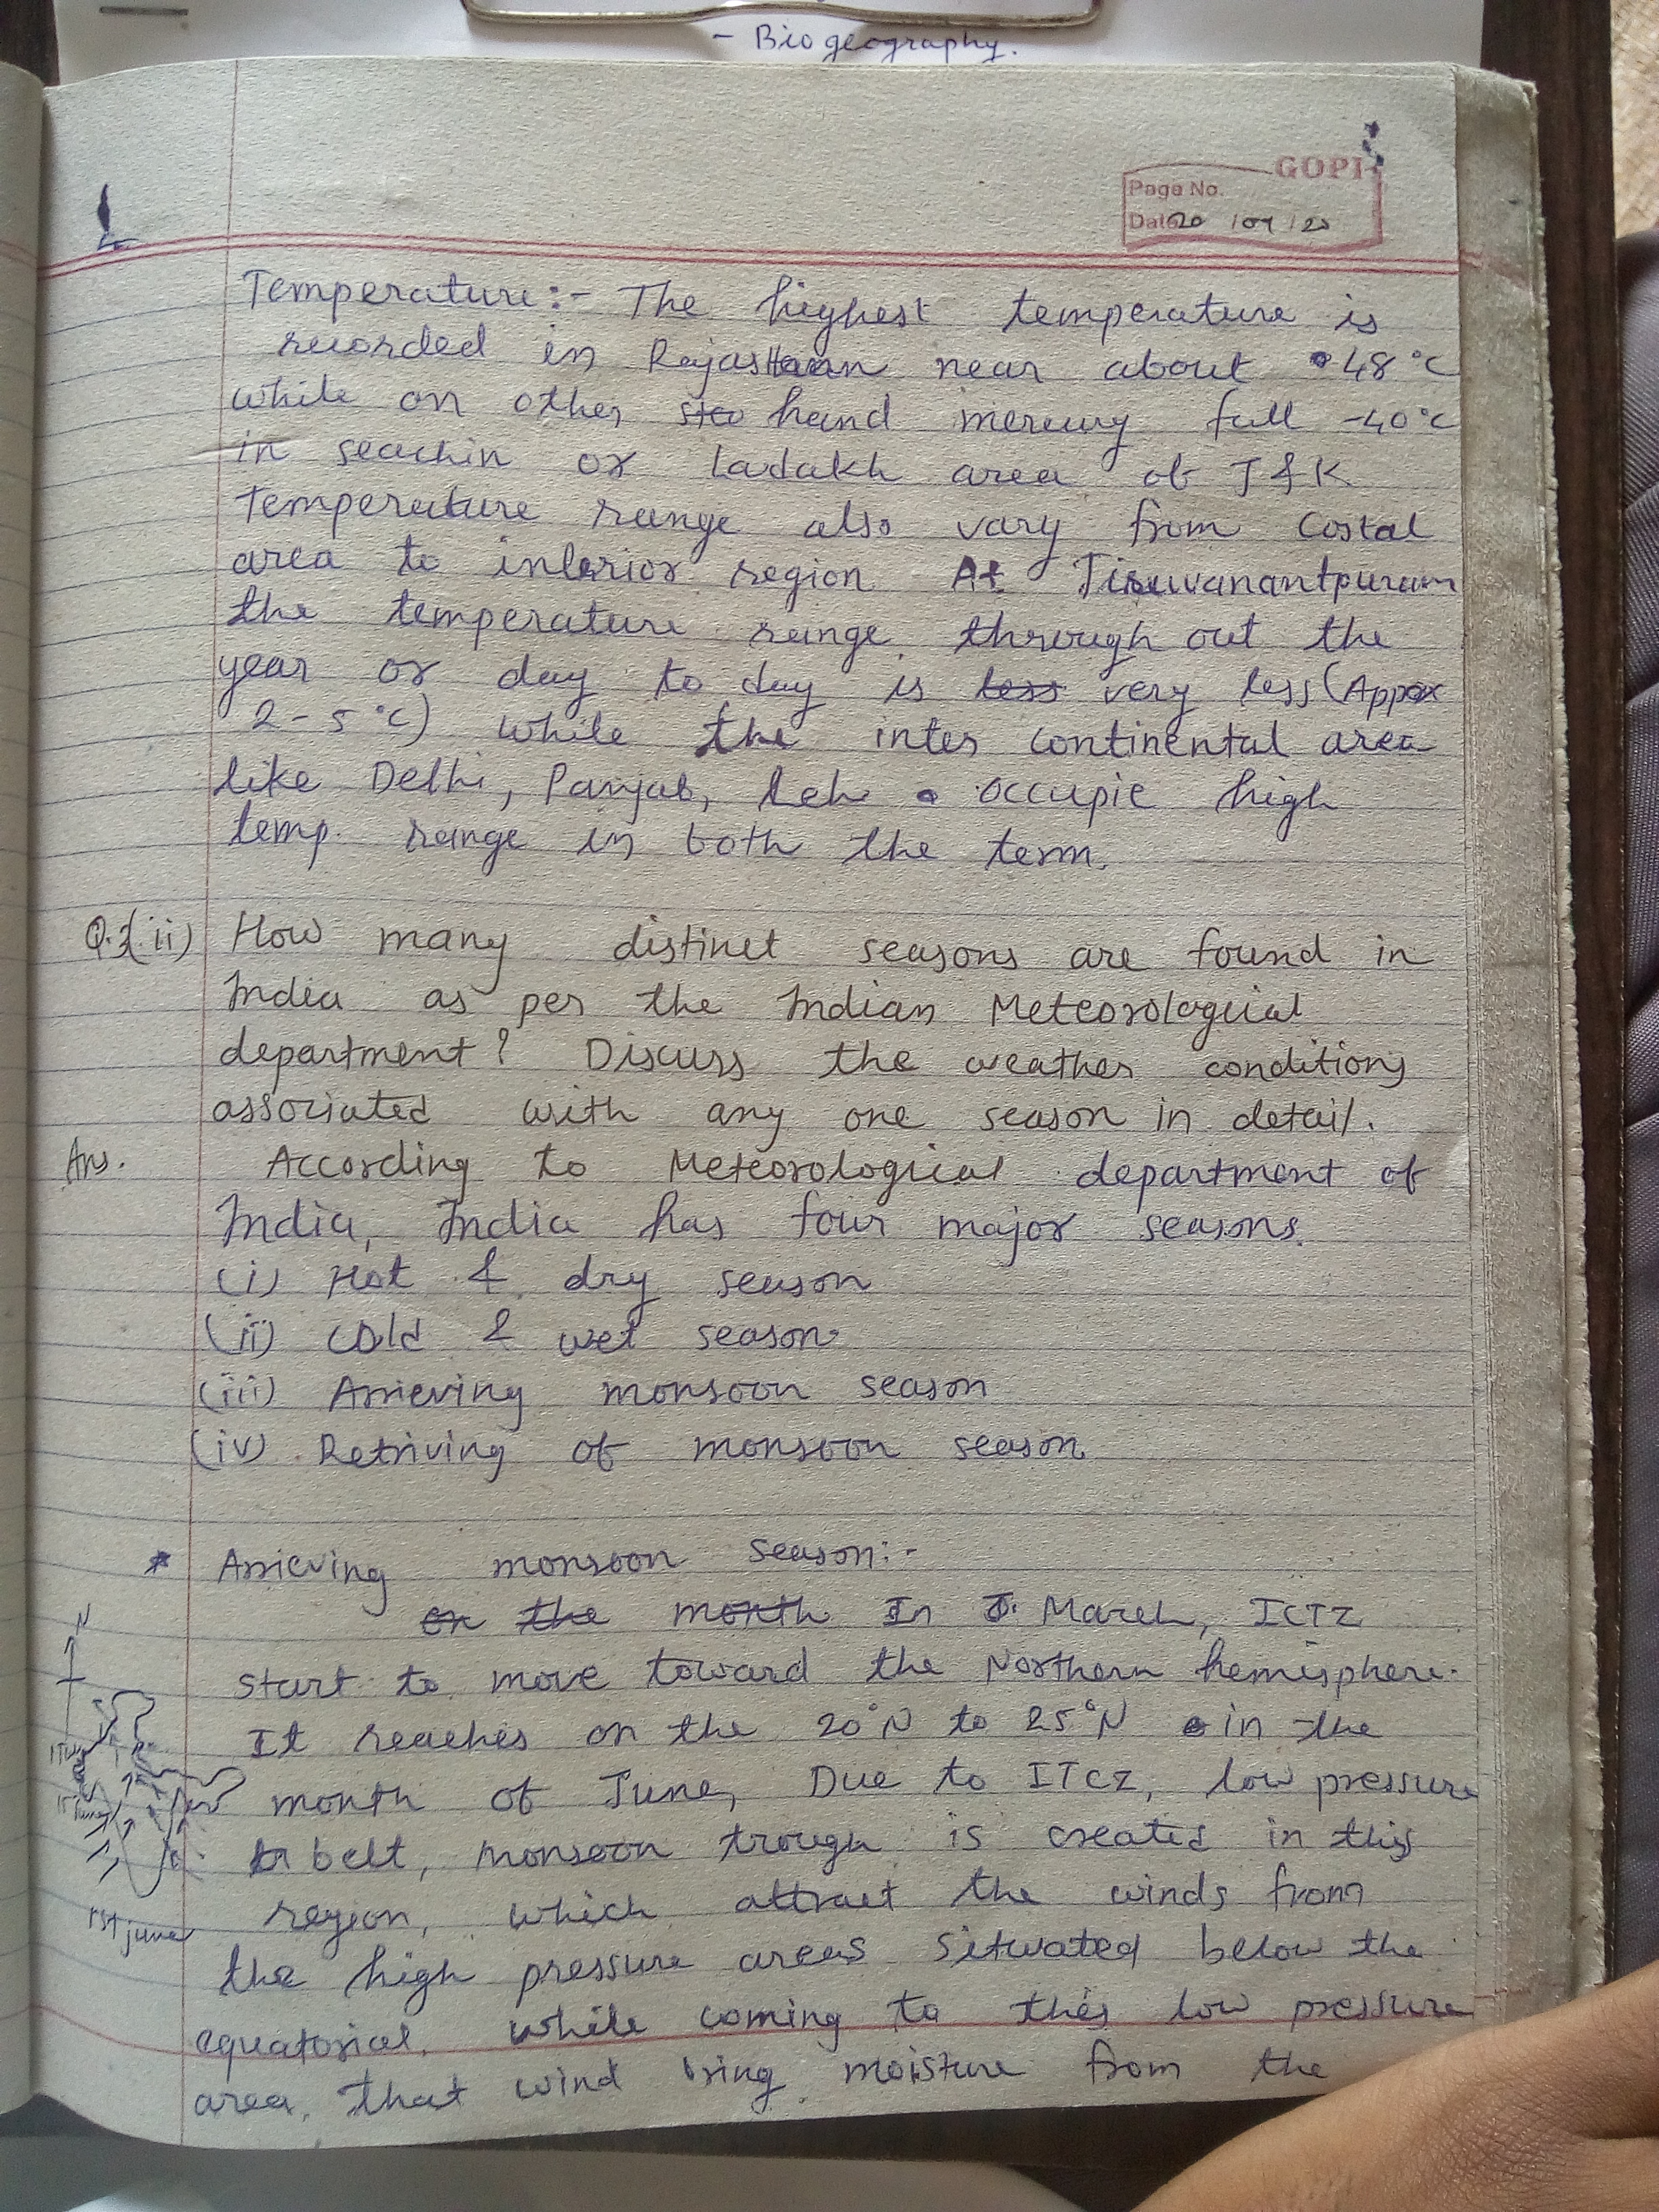 - Biogeography.
GOPI
Page No.
Date 20 / 09 / 20
Temperature:- The highest temperature is
recorded in Rajasthan near about 48°C
while on other hand mercury fall -40°C
in seachin or Ladakh area of J & K
Temperature range also vary from Costal
area to interior region At Tiruvanantpuram
the temperature range through out the
year or day to day is less very less (Appox
2-5°C) while the inter continental area
like Delhi, Panjab, Leh occupie high
temp. range in both the term.
Q.3(ii) How many distinct seasons are found in
India as per the Indian Meteorological
department? Discuss the weather conditions
associated with any one season in detail.
Ans. According to Meteorological department of
India, India has four major seasons.
(i) Hot & dry season
(ii) Cold & wet season
(iii) Arrieving monsoon season
(iv) Retriving of monsoon season
* Arrieving monsoon season:-
on the month In March, ICTZ
N
start to move toward the Northern hemisphere.
It reaches on the 20°N to 25°N in the
month of June, Due to ITCZ, low pressure
15 June
belt, monsoon trough is created in this
region, which attract the winds from
1st june
the high pressure areas situated below the
equatorial. while coming to this low pressure
area, that wind bring moisture from the